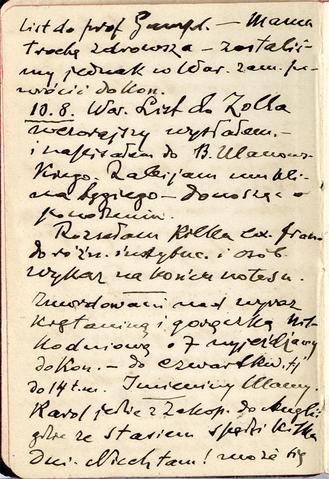 List do prof. – Mama
trochę zdrowsza – zostaliś-
my jednak w War. zam. po-
wrócić do Kon.
10.8. War. List do Zolla
wczorajszy wysłałem. –
i napisałem do B. Ulanows-
kiego. Zabijam mu kli-
na – donosząc o
Rozesłałem kilka ex.
do różn. instytuc. i osób.
wykaz na końcu notesu.
Zmordowani nad wyraz
krętaniną i gorączką
o 7 wyjeżdżamy
do Kon. – do czwartku, tj.
do 14 t.m. Imieniny Mamy.
Karol jedzie z Zakop. do Anglii
gdzie ze Stasiem spędzi kilka
dni. Niech tam! może się